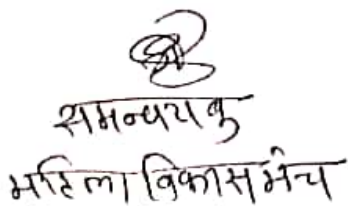 समन्वयक
महिला विकास मंच